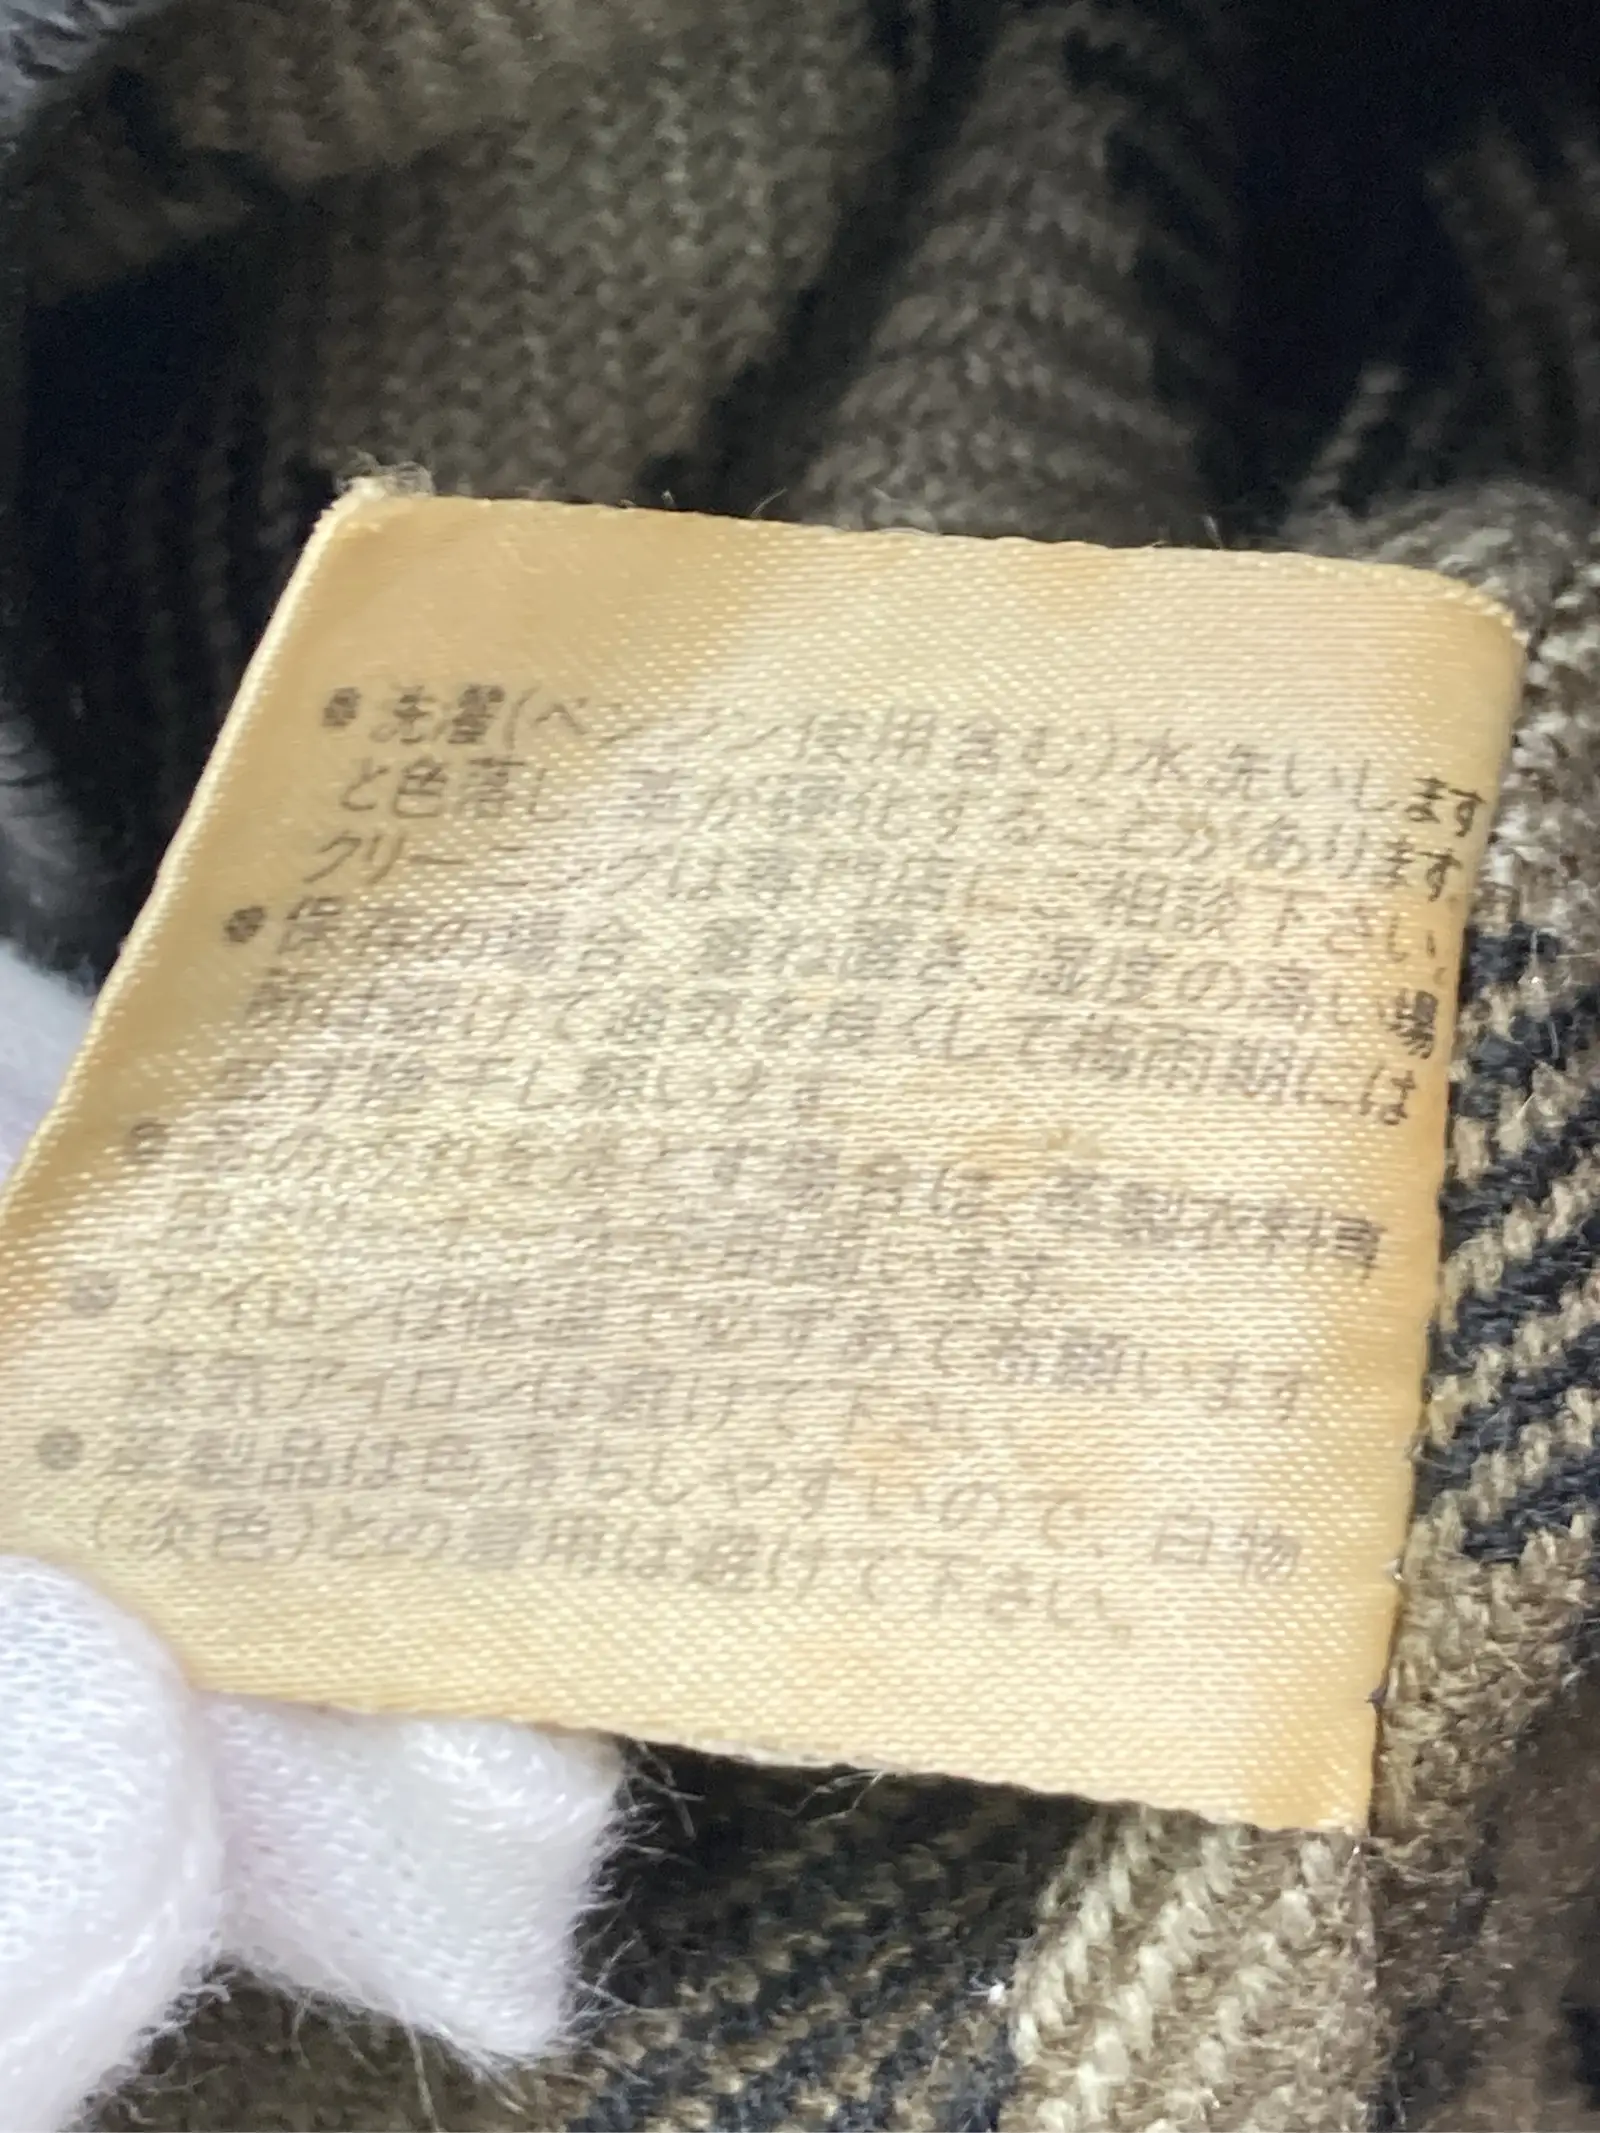 ●洗濯(ベンジン使用含む)水洗いします
と色落し、革が硬化することがあります。
クリーニングは専門店にご相談下さい。
●保存の場合、重ね置き、湿度の高い場
所は避けて通気を良くして梅雨期には
必ず陰干し願います
● 革の汚れを落とす場合は、革製衣料専
用
●アイロンは低温で必ずあて布願います
蒸気アイロンは避けて下さい
●革製品は色落ちしやすいので、白物
(淡色)との着用は避けて下さい。